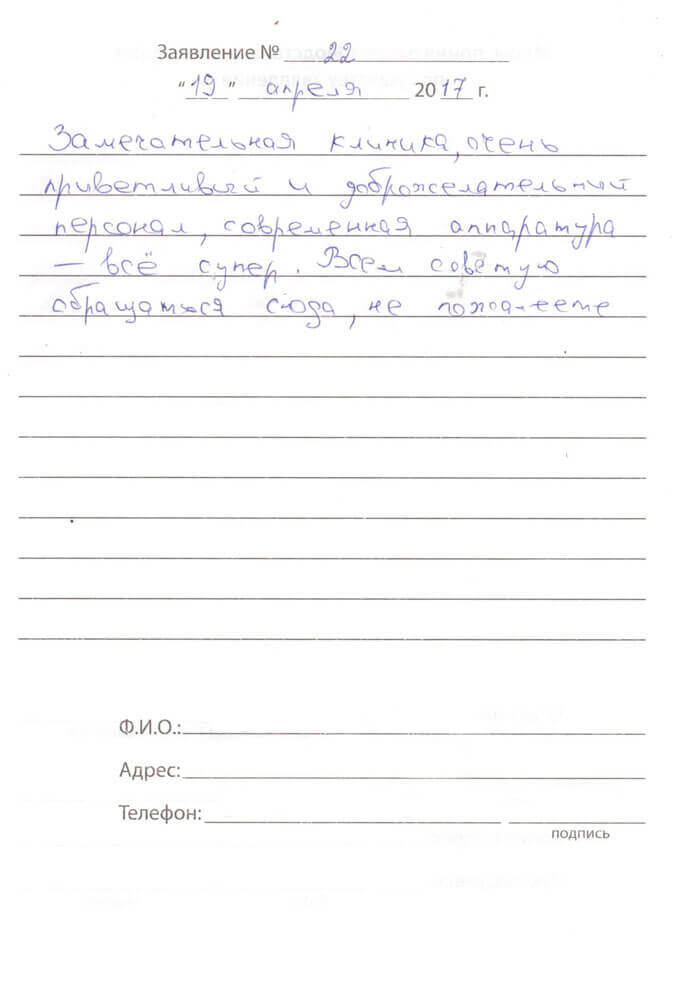 Заявление № 22
"19" апреля 2017 г.
Замечательная клиника, очень
приветливый и доброжелательный
персонал, современная аппаратура
— всё супер. Всем советую
обращаться сюда, не пожалеете
Ф.И.О.:
Адрес:
Телефон:
подпись